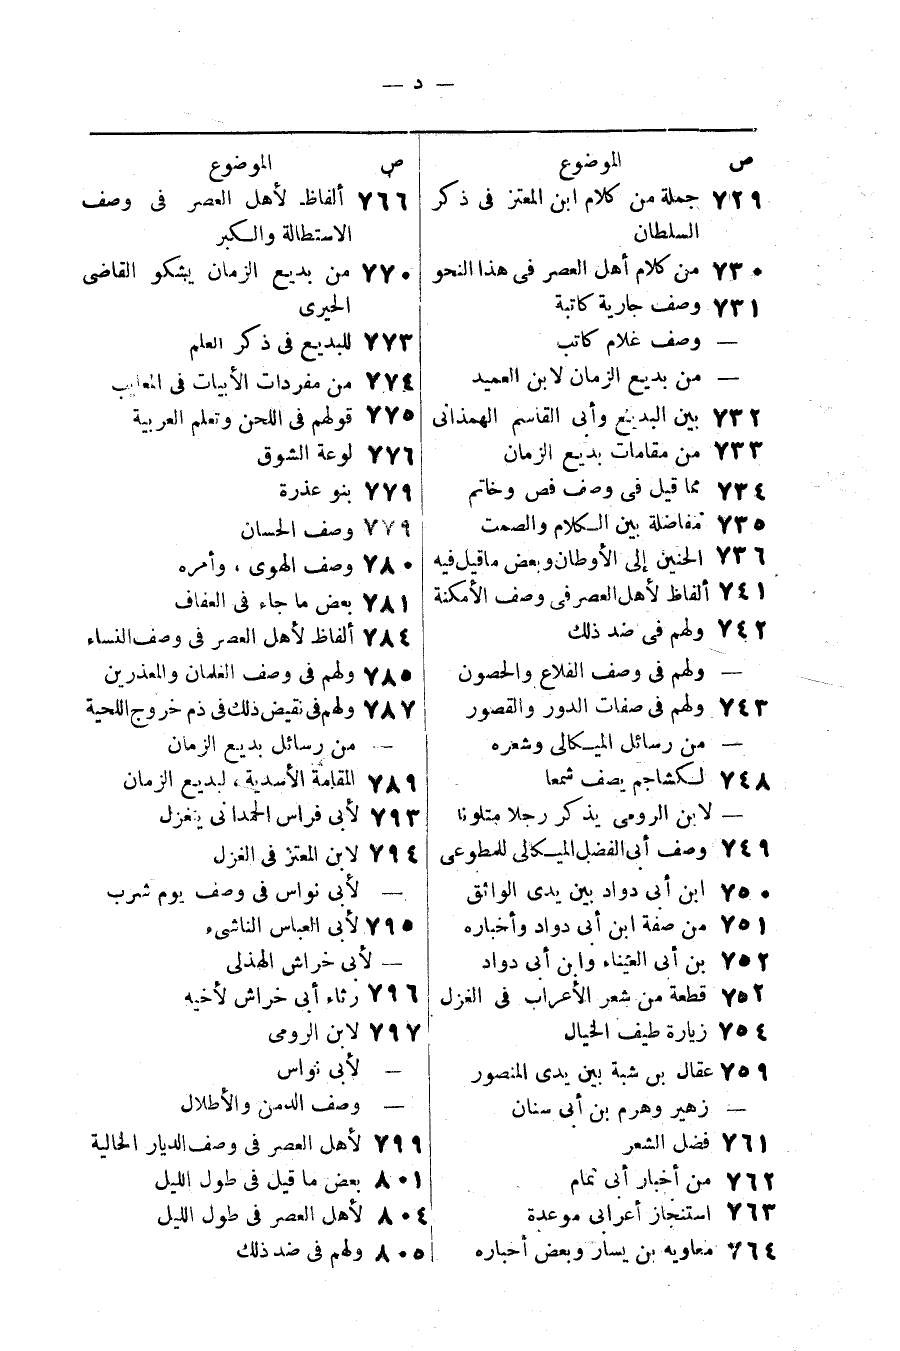 — د —
ص الموضوع
٧٢٩ جملة من كلام ابن المعتز فى ذكر
السلطان
٧٣٠ من كلام أهل العصر فى هذا النحو
٧٣١ وصف جارية كاتبة
— وصف غلام كاتب
— من بديع الزمان لابن العميد
٧٣٢ بين البديع وأبى القاسم الهمذانى
٧٣٣ من مقامات بديع الزمان
٧٣٤ مما قيل فى وصف فص وخاتم
٧٣٥ مفاضلة بين الكلام والصمت
٧٣٦ الحنين إلى الأوطان وبعض ماقيل فيه
٧٤١ ألفاظ لأهل العصر فى وصف الأمكنة
٧٤٢ ولهم فى ضد ذلك
— ولهم فى وصف القلاع والحصون
٧٤٣ ولهم فى صفات الدور والقصور
— من رسائل الميكالى وشعره
٧٤٨ لكشاجم يصف شمعا
— لابن الرومى يذكر رجلا متلونا
٧٤٩ وصف أبى الفضل الميكالى للمطوعى
٧٥٠ ابن أبى دواد بين يدى الواثق
٧٥١ من صفة ابن أبى دواد وأخباره
٧٥٢ بن أبى العيناء وابن أبى دواد
٧٥٢ قطعة من شعر الأعراب فى الغزل
٧٥٤ زيارة طيف الخيال
٧٥٩ عقال بن شبة بين يدى المنصور
— زهير وهرم بن أبى سنان
٧٦١ فضل الشعر
٧٦٢ من أخبار أبى تمام
٧٦٣ استنجاز أعرابى موعدة
٧٦٤ معاويه بن يسار وبعض أخباره
ص الموضوع
٧٦٦ ألفاظ لأهل العصر فى وصف
الاستطالة والكبر
٧٧٠ من بديع الزمان يشكو القاضى
الحيرى
٧٧٣ للبديع فى ذكر العلم
٧٧٤ من مفردات الأبيات فى المعايب
٧٧٥ قولهم فى اللحن وتعلم العربية
٧٧٦ لوعة الشوق
٧٧٩ بنو عذرة
٧٧٩ وصف الحسان
٧٨٠ وصف الهوى ، وأمره
٧٨١ بعض ما جاء فى العفاف
٧٨٤ ألفاظ لأهل العصر فى وصف النساء
٧٨٥ ولهم فى وصف الغلمان والمعذرين
٧٨٧ ولهم فى نقيض ذلك فى ذم خروج اللحية
— من رسائل بديع الزمان
٧٨٩ المقامة الأسدية ، لبديع الزمان
٧٩٣ لأبى فراس الحمدانى يتغزل
٧٩٤ لابن المعتز فى الغزل
— لأبى نواس فى وصف يوم شرب
٧٩٥ لأبى العباس الناشىء
— لأبى خراش الهذلى
٧٩٦ رثاء أبى خراش لأخيه
٧٩٧ لابن الرومى
— لأبى نواس
— وصف الدمن والأطلال
٧٩٩ لأهل العصر فى وصف الديار الخالية
٨٠١ بعض ما قيل فى طول الليل
٨٠٤ لأهل العصر فى طول الليل
٨٠٥ ولهم فى ضد ذلك